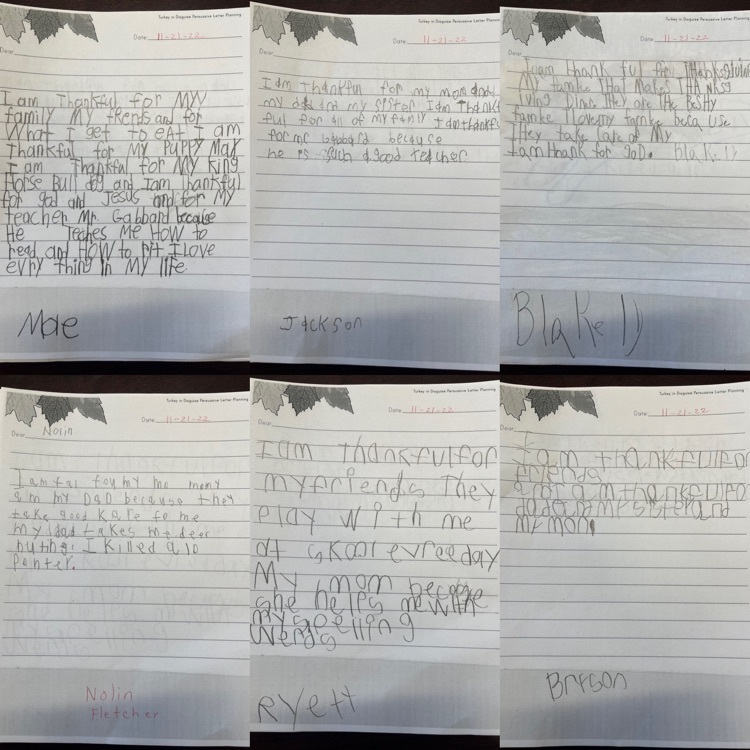 Turkey in Disguise Persuasive Letter Planning
Date: 11-21-22
Dear
I am Thankful for MY
family MY frends and for
What I get to eat I am
Thankful for MY PUPPY Max
I am Thankful for MY King
Horse Bull dog and I am thankful
for god and Jesus and for MY
teacher Mr. Gabbard because
He Teaches Me HOW to
read and HOW to I LOVE
evry thing in MY life
Mae
Turkey in Disguise Persuasive Letter Planning
Date: 11-21-22
Dear
I am thankful for my mom and
my dad and my sister I am thank
ful for all of my family I am thankf
for mr because
he is such a good teacher
Jackson
Turkey in Disguise Persuasive Letter Planning
Date: 11-21-22
Dear
I am thank ful for Thanksgiving
My famke That Makes THA NKsg
iving Dinr They are The Besty
famke I love my famke beca use
They take care of My
I am thank for goD. blake D
Blake D
Turkey in Disguise Persuasive Letter Planning
Date: 11-21-22
Dear Nolin
I am ful my mo mony
a m my DaD because they
take good Kare fo me
my dad takes me deer
huting. I killed a 10
penter.
Nolin
Fletcher
Turkey in Disguise Persuasive Letter Planning
Date: 11-21-22
Dear
I am thankful for
my friends They
play With me
at skool evree day
My mom because
she helps me with
my spelling
Werds
RYett
Turkey in Disguise Persuasive Letter Planning
Date: 11-21-22
I am thankful fo
friends
and I am thankful fo
dad and my sister and
my mom
Bryson